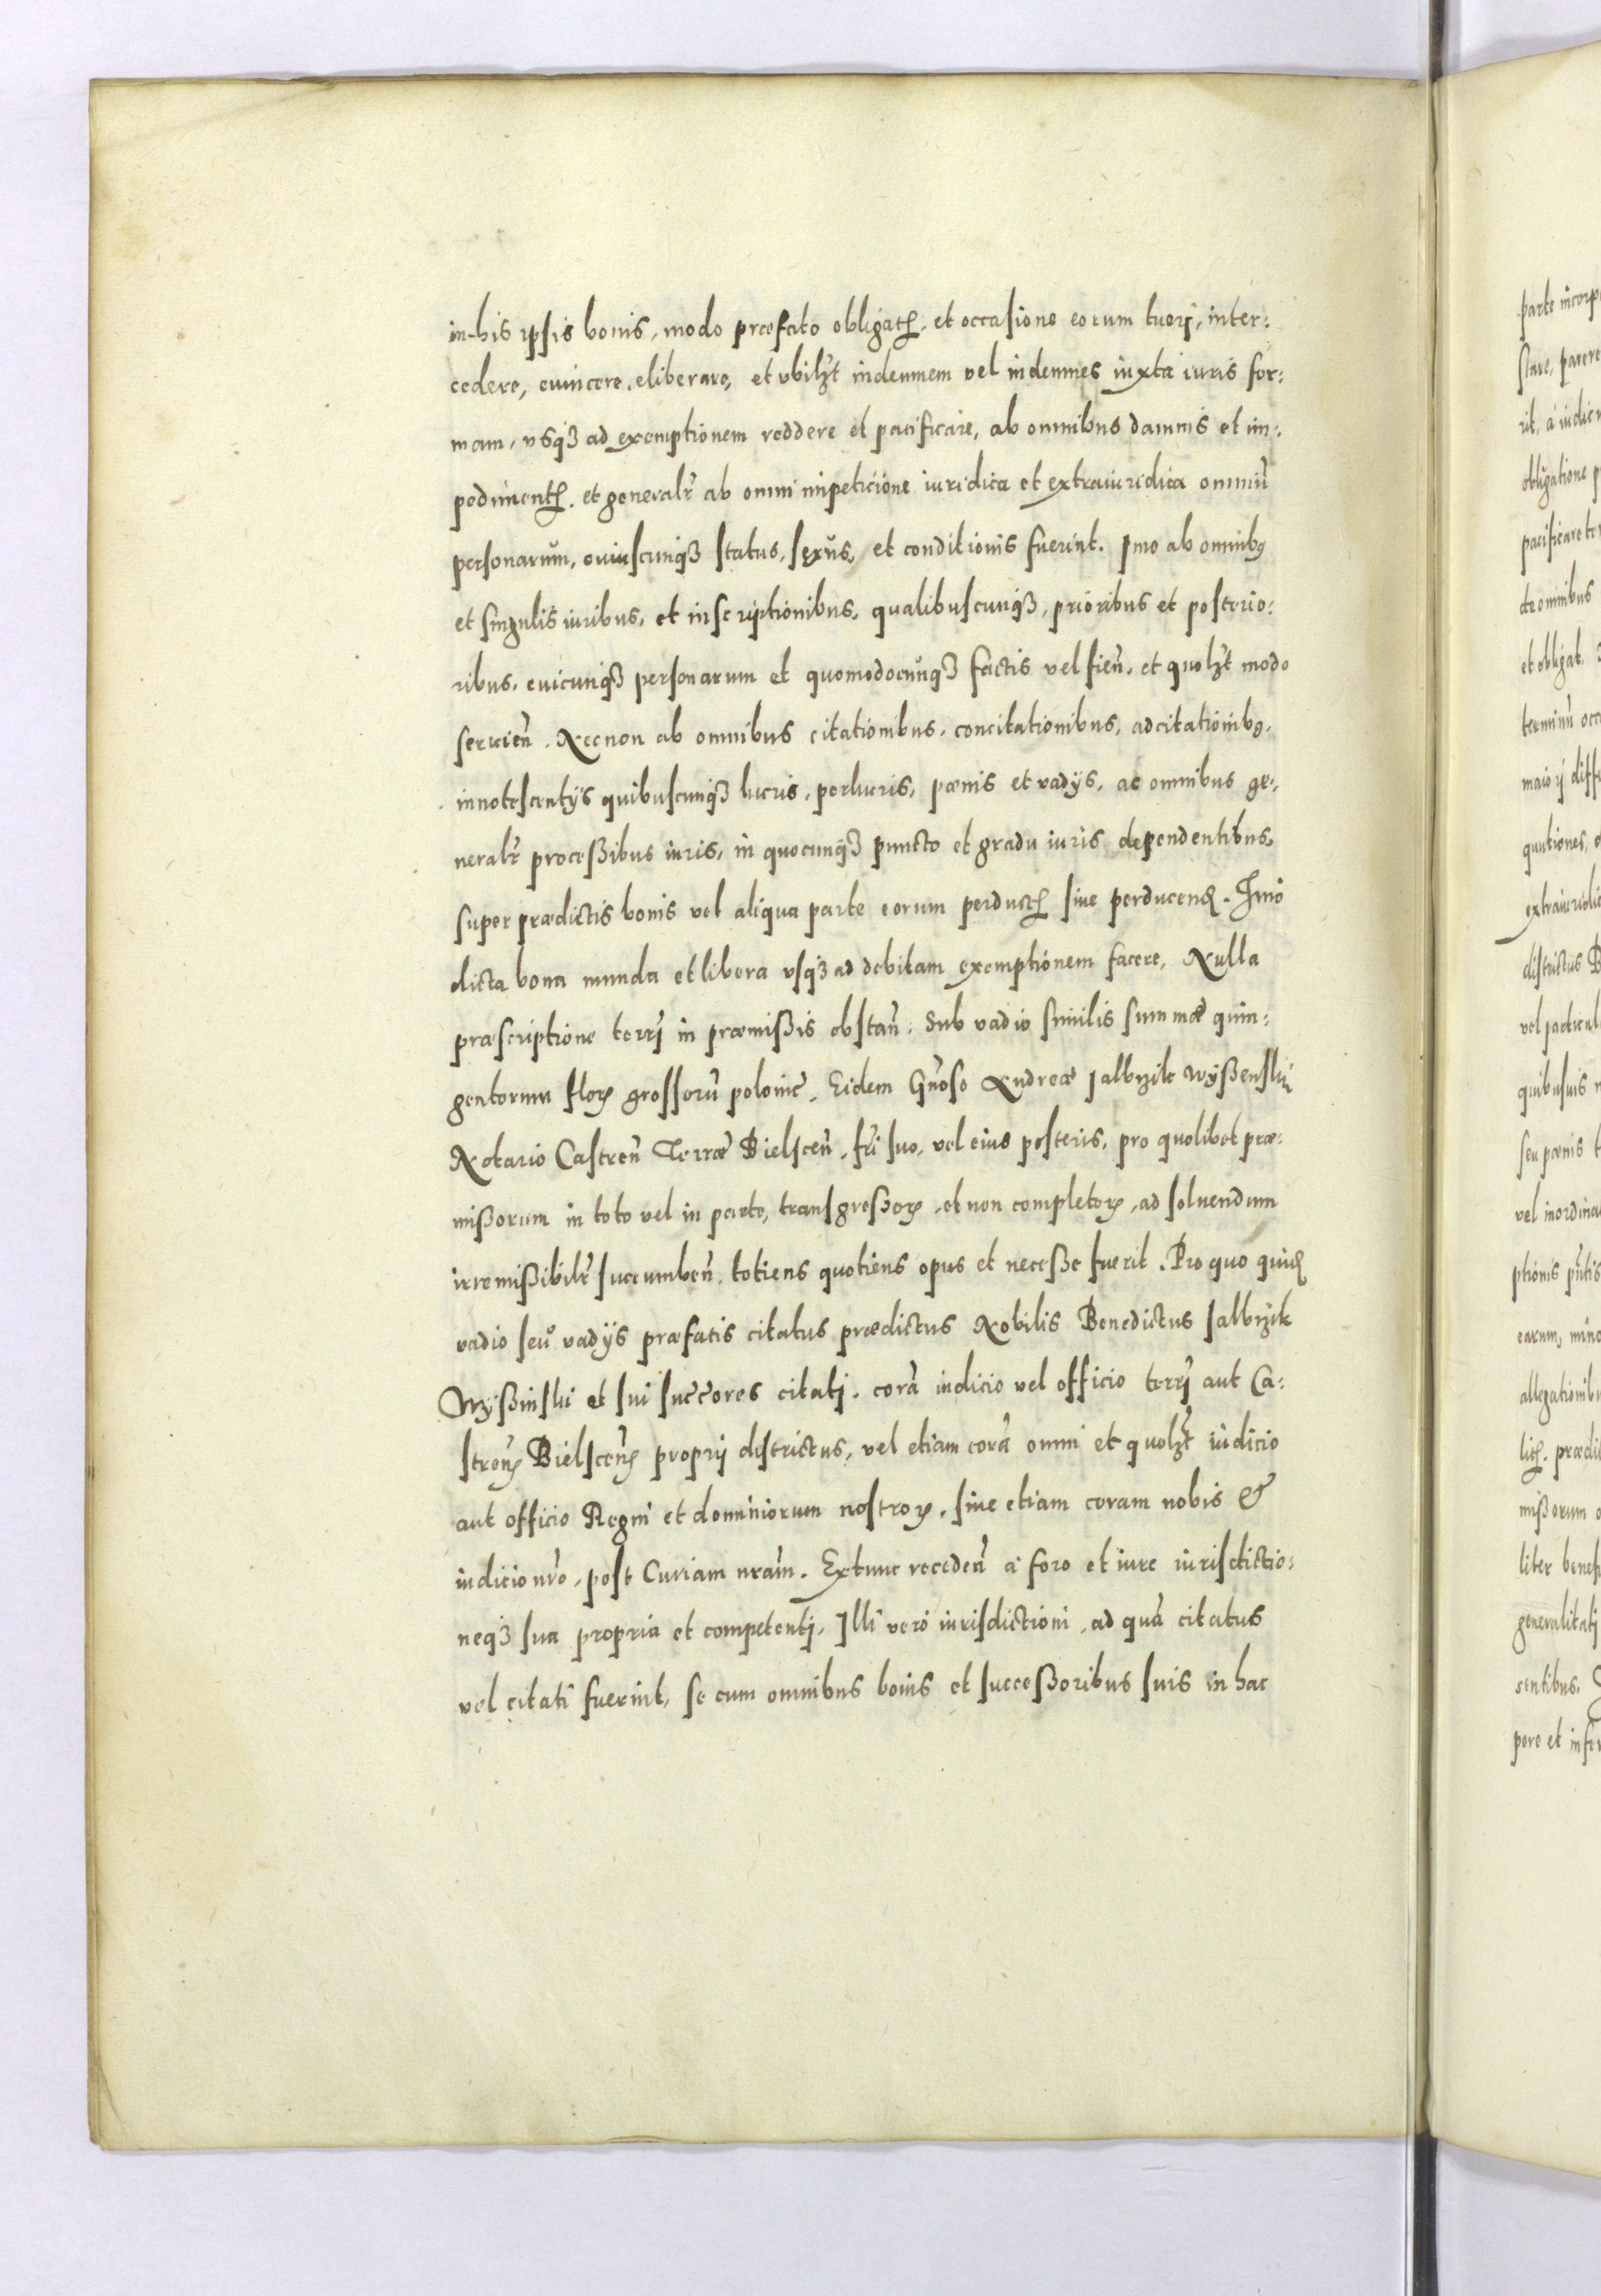 in his ipsis bonis, modo præfato obligatꝭ, et occasione eorum tueri, inter:
cedere, euincere, eliberare, et vbilꝫt indemnem vel indemnes iuxta iuris for:
mam, vsqꝫ ad exemptionem reddere et pacificare, ab omnibus damnis et im:
pedimentꝭ. et generalr̃ ab omni impeticione iuridica et extraiuridica omniũ
personarum, cuiuscunqꝫ status, sexus, et conditionis fuerint. Imo ab omnibꝯ
et singulis iuribus, et inscriptionibus, qualibuscunqꝫ, prioribus et posterio:
ribus, cuicunqꝫ personarum et quomodocunqꝫ factis vel fieñ, et quolꝫt modo
seruieñ. Necnon ab omnibus citationibus, concitationibus, adcitationibꝯ,
innotescentijs quibuscunqꝫ lucris, perlucris, pœnis et vadijs, ac omnibus ge:
neralr̃ processibus iuris, in quocunqꝫ puncto et gradu iuris dependentibus,
super prædictis bonis vel aliqua parte eorum perductꝭ siue perducendꝭ. Imo
dicta bona munda et libera vsqꝫ ad debitam exemptionem facere, Nulla
præscriptione terrj in præmissis obstañ. Sub vadio similis summæ quin:
gentorum florꝝ grossorũ polonic̃. Eidem Gñoso Andreæ Jalbrzik Wyssenski
Notario Castreñ Terræ Bielsceñ, fr̃i suo, vel eius posteris, pro quolibet præ:
missorum in toto vel in parte, transgressorꝝ, et non completorꝝ, ad soluendum
irremissibilr̃ succumbeñ, totiens quotiens opus et necesse fuerit. Pro quo quidꝭ
vadio seu vadijs præfatis citatus prædictus Nobilis Benedictus Jalbrzik
Wyssinski et sui succ̃ores citatj, corã iudicio vel officio terrj aut Ca:
streñ Bielsceñ proprij districtus, vel etiam corã omni et quolꝫt iudicio
aut officio Regni et dominiorum nostrorꝝ, siue etiam coram nobis &
iudicio nr̃o, post Curiam nr̃am. Extunc recedeñ à foro et iure iurisdictio:
neqꝫ sua propria et competentj, Illi vero iurisdictioni, ad quã citatus
vel citati fuerint, se cum omnibus bonis et successoribus suis in hac
parte incorpo
stare, parere
rit, a iudic
obligatione p
pacificare te
omnibus
et obligat.
terminũ occ
maiorj diff
extraiuridic
districtus B
quibusuis
seu pœnis t
vel inordina
ptionis pñtis
earum, mino
allegationib
litꝭ. prædi
missorum
liter benef
generalitatj
sentibus.
pere et infe